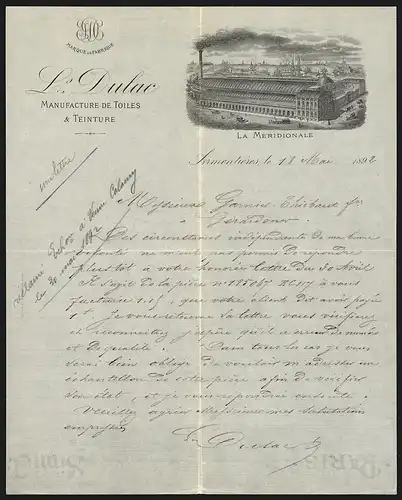 MARQUE DE FABRIQUE
Ls Dulac
MANUFACTURE DE TOILES
& TEINTURE
LA MERIDIONALE
Armentières, le 18 Mai 1892
Messieurs Garnier Thiebaut fr
à Gerardmer
Des circonstances indépendantes de ma bonne
volonté ne m'ont pas permis de répondre
plus tôt à votre honorée lettre du 30 Avril
Il s'agit de la pièce n° 185067 à vous
facturée 1.15, que votre client dit avoir payé
1f. Je vous retourne sa lettre vous vérifierez
et reconnaîtrez j'espère qu'il a erreur de numéro
et de qualité. Dans tous les cas je vous
serai bien obligé de vouloir m'adresser un
échantillon de cette pièce afin de vérifier
son état, et je vous répondrai ensuite.
Veuillez agréer Messieurs mes salutations
empressées
Ls Dulac
une lettre
le 20 mai 1892
PARIS